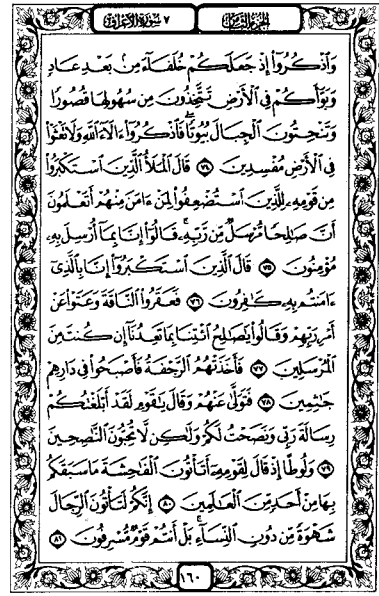 الجزء الثامن ٧ سورة الأعراف
وَٱذْكُرُوٓا۟ إِذْ جَعَلَكُمْ خُلَفَآءَ مِنۢ بَعْدِ عَادٍ
وَبَوَّأَكُمْ فِى ٱلْأَرْضِ تَتَّخِذُونَ مِن سُهُولِهَا قُصُورًا
وَتَنْحِتُونَ ٱلْجِبَالَ بُيُوتًا ۖ فَٱذْكُرُوٓا۟ ءَالَآءَ ٱللَّهِ وَلَا تَعْثَوْا۟
فِى ٱلْأَرْضِ مُفْسِدِينَ ٧٤ قَالَ ٱلْمَلَأُ ٱلَّذِينَ ٱسْتَكْبَرُوا۟
مِن قَوْمِهِۦ لِلَّذِينَ ٱسْتُضْعِفُوا۟ لِمَنْ ءَامَنَ مِنْهُمْ أَتَعْلَمُونَ
أَنَّ صَٰلِحًا مُّرْسَلٌ مِّن رَّبِّهِۦ ۚ قَالُوٓا۟ إِنَّا بِمَآ أُرْسِلَ بِهِۦ
مُؤْمِنُونَ ٧٥ قَالَ ٱلَّذِينَ ٱسْتَكْبَرُوٓا۟ إِنَّا بِٱلَّذِىٓ
ءَامَنتُم بِهِۦ كَٰفِرُونَ ٧٦ فَعَقَرُوا۟ ٱلنَّاقَةَ وَعَتَوْا۟ عَنْ
أَمْرِ رَبِّهِمْ وَقَالُوا۟ يَٰصَٰلِحُ ٱئْتِنَا بِمَا تَعِدُنَآ إِن كُنتَ مِنَ
ٱلْمُرْسَلِينَ ٧٧ فَأَخَذَتْهُمُ ٱلرَّجْفَةُ فَأَصْبَحُوا۟ فِى دَارِهِمْ
جَٰثِمِينَ ٧٨ فَتَوَلَّىٰ عَنْهُمْ وَقَالَ يَٰقَوْمِ لَقَدْ أَبْلَغْتُكُمْ
رِسَالَةَ رَبِّى وَنَصَحْتُ لَكُمْ وَلَٰكِن لَّا تُحِبُّونَ ٱلنَّٰصِحِينَ
٧٩ وَلُوطًا إِذْ قَالَ لِقَوْمِهِۦٓ أَتَأْتُونَ ٱلْفَٰحِشَةَ مَا سَبَقَكُم
بِهَا مِنْ أَحَدٍ مِّنَ ٱلْعَٰلَمِينَ ٨٠ إِنَّكُمْ لَتَأْتُونَ ٱلرِّجَالَ
شَهْوَةً مِّن دُونِ ٱلنِّسَآءِ ۚ بَلْ أَنتُمْ قَوْمٌ مُّسْرِفُونَ ٨١
١٦٠